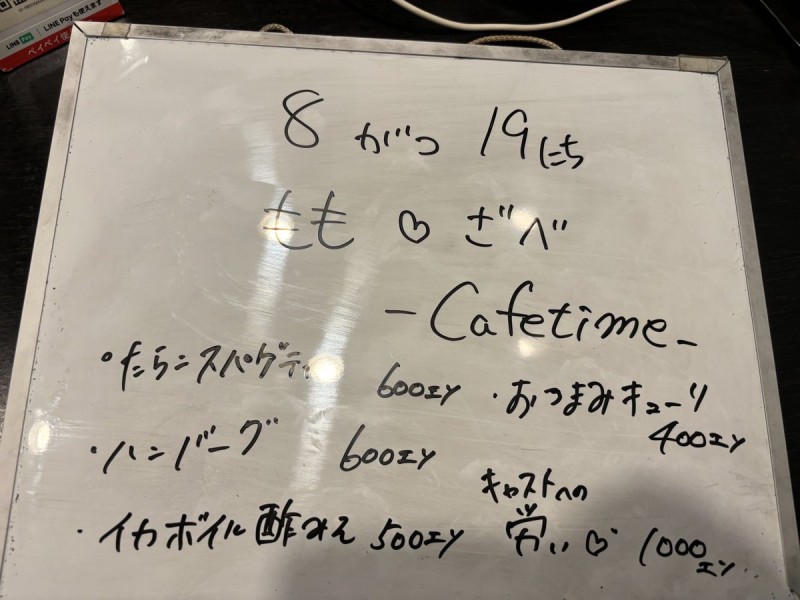 LINE Pay LINE Payも使えます
ペイペイ使
8がつ19にち
もも♡ざべ
-Cafetime-
・たらこスパゲティ 600エン
・おつまみキューリ
400エン
・ハンバーグ 600エン
・イカボイル酢みそ 500エン
キャストへの
労い♡ 1000エン